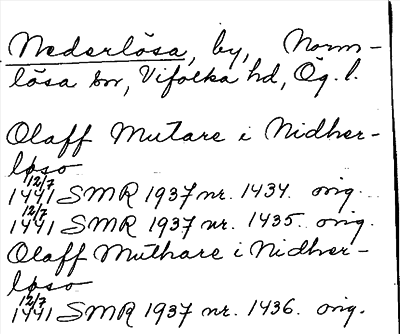 Nederlösa, by, Norm-
lösa sn, Vifolka hd, Ög. l.
Olaff Mutare i Nidher-
løso
12/7
1441 SMR 1937 nr. 1434. orig.
12/7
1441 SMR 1937 nr. 1435. orig.
Olaff Muthare i Nidher-
løso
12/7
1441 SMR 1937 nr. 1436. orig.